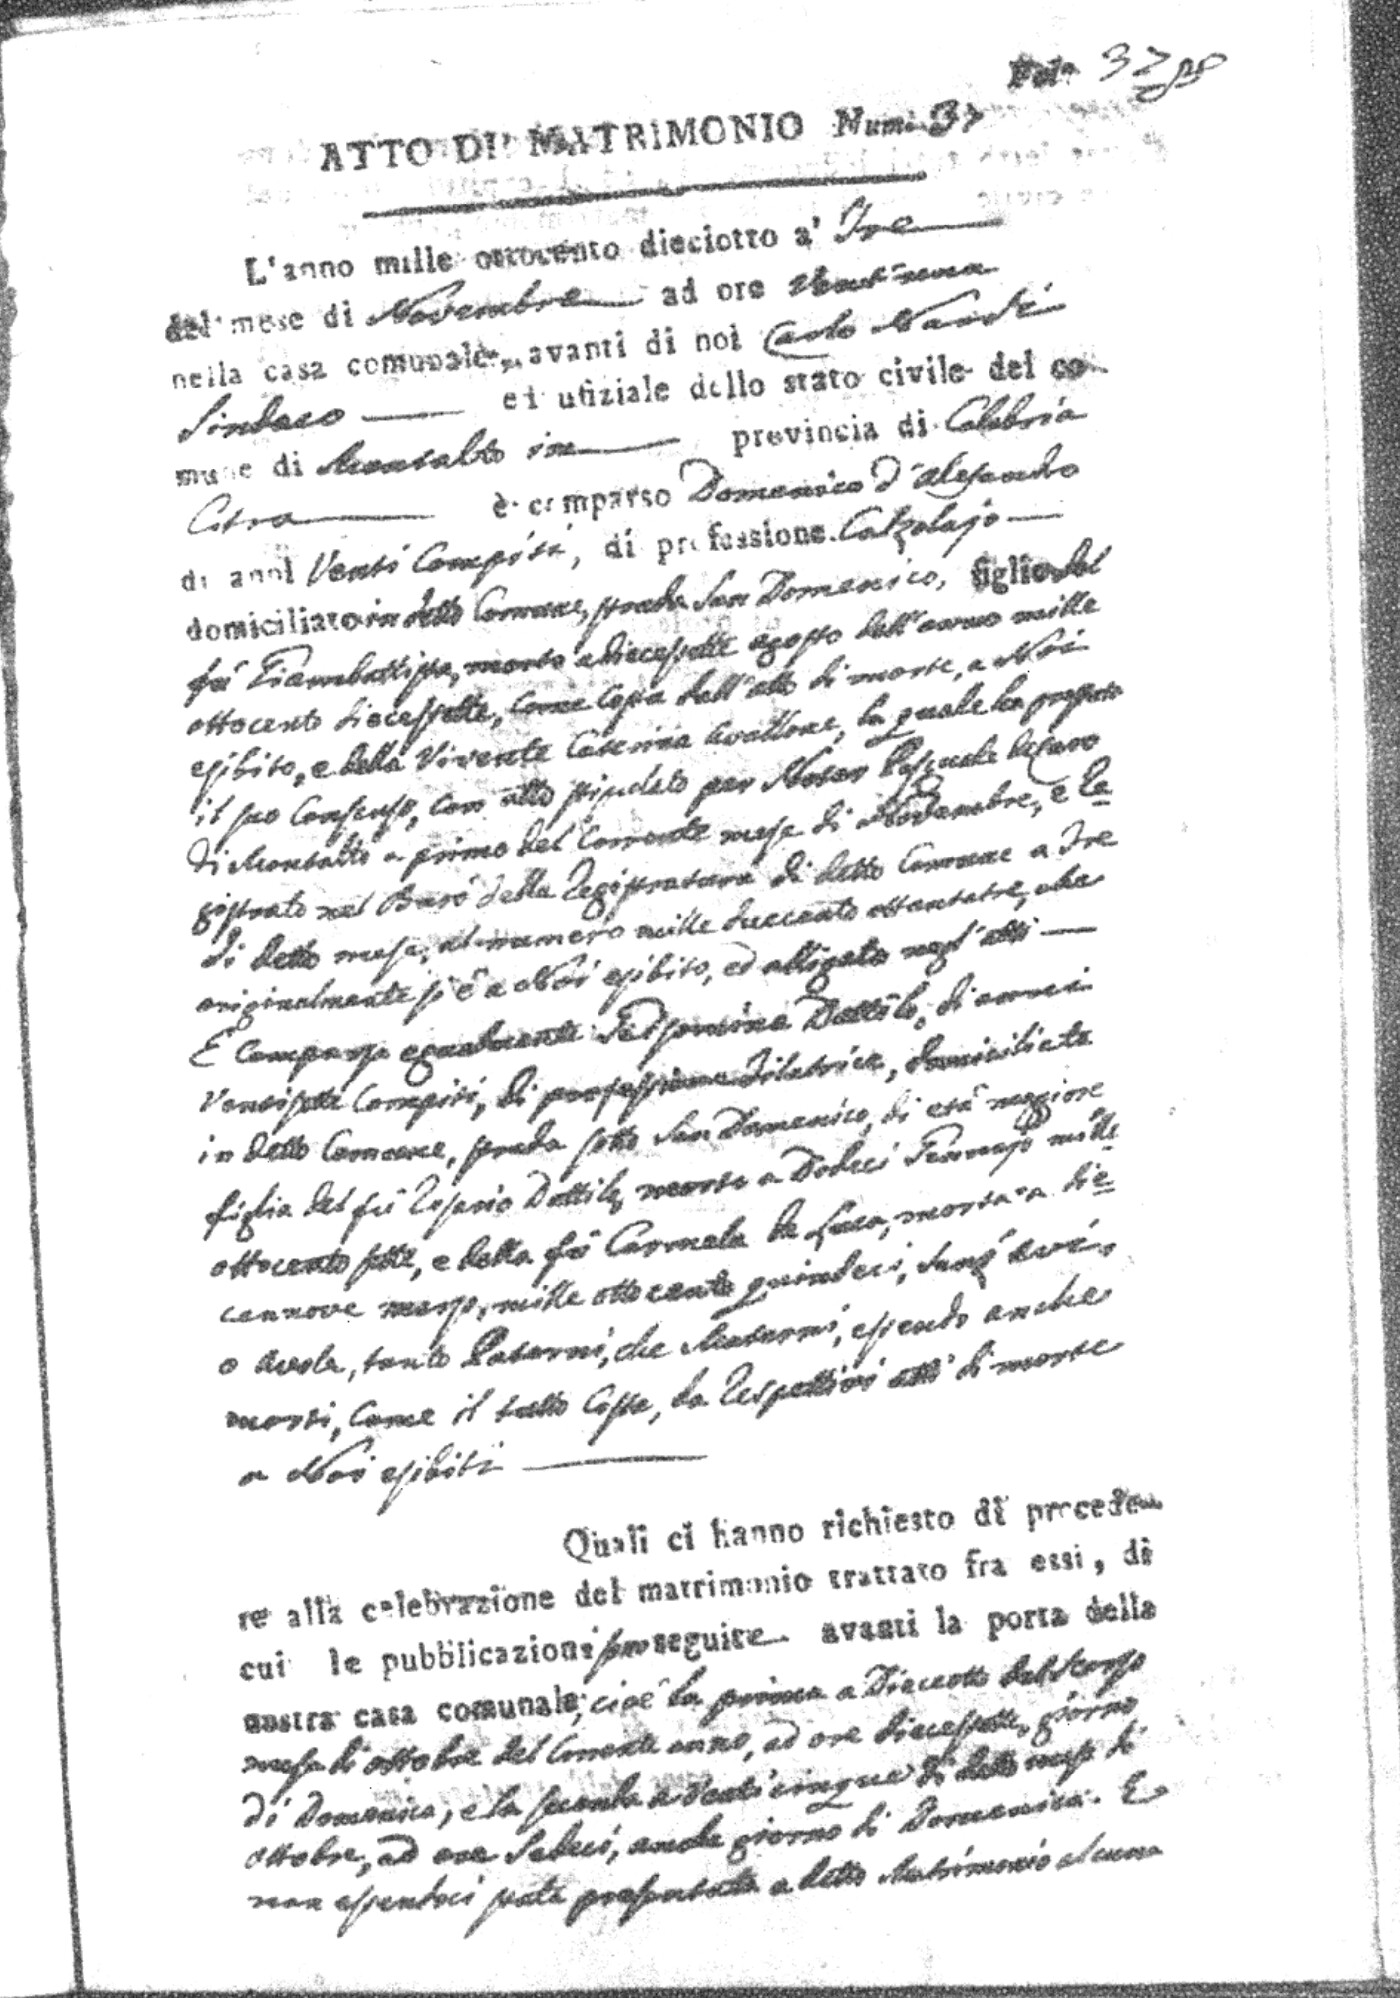 Fol.° 37
ATTO DI MATRIMONIO Num. 37
L'anno mille ottocento dieciotto a' Tre
del mese di Novembre ad ore Vent'una
nella casa comunale, avanti di noi Carlo Nardi
Sindaco ed ufiziale dello stato civile del co-
mune di Montalto in provincia di Calabria
Citra è comparso Domenico d'Alesandro
di anni Venti Compiti, di professione Calzolajo
domiciliato in detto Comune, strada San Domenico, figlio del
fù Giambattista, morto a diecessette agosto dell'anno mille
ottocento diecessette, come Copia dell'atto di morte, a Noi
esibito, e della Vivente Caterina Avallone, la quale ha prestato
il suo Consenso, con atto stipulato per Notar Pasquale
di Montalto a primo del Corrente mese di Novembre, e Re=
gistrato nel Burò della Registratura di detto Comune a Tre
di detto mese, al numero mille duecento ottantatre, che
originalmente si è a Noi esibito, ed alligato negl'atti
E Comparsa egualmente Gelsomina Dattilo, di anni
Ventisette Compiti, di professione Filatrice, domiciliata
in detto Comune, strada sotto San Domenico, di età maggiore
figlia del fù Rosario Dattilo, morto a Dodeci Gennajo mille
ottocento sette, e della fù Carmela de Luca, morta a die=
cennove marzo, mille ottocento quindeci, senz'avi,
o Avola, tanto Paterni, che Materni, essendo anche
morti, Come il tutto Costa, da Respettivi atti di morte
a Noi esibiti
Quali ci hanno richiesto di procede-
re alla celebrazione del matrimonio trattato fra essi, di
cui le pubblicazioni son seguite avanti la porta della
nostra casa comunale; cioè la prima a Dieceotto del Scorso
mese di ottobre del Corrente anno, ad ore diecessette, giorno
di Domenica, e la seconda a Venti cinque di detto mese di
ottobre, ad ore Sedeci, anche giorno di Domenica. E
non essendoci stata presentata a detto Matrimonio alcuna